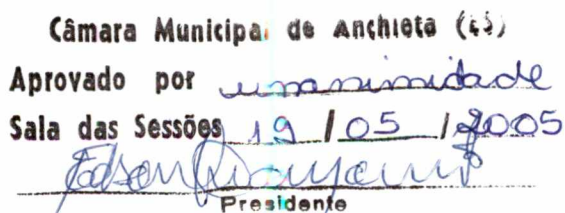 Câmara Municipal de Anchieta (ES)
Aprovado por unanimidade
Sala das Sessões 19 / 05 / 2005
Edson
Presidente